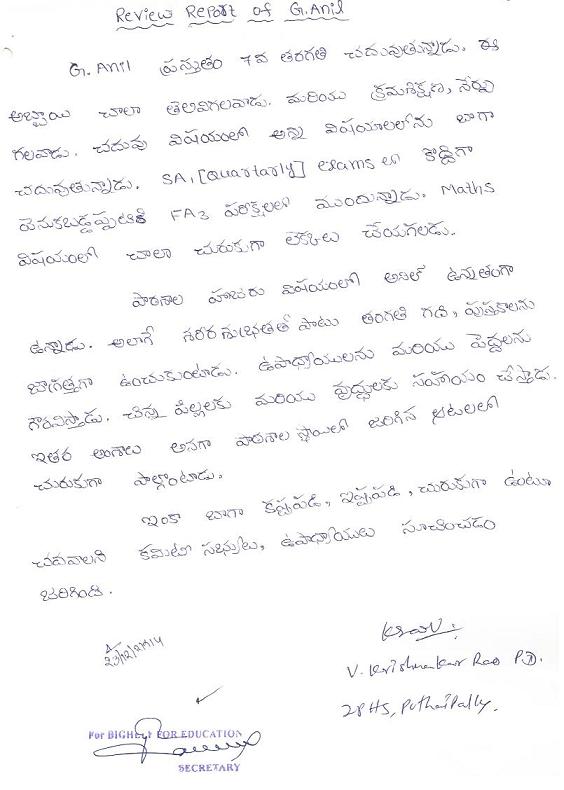 Review Report of G.Anil
G. Anil ప్రస్తుతం 7వ తరగతి చదువుతున్నాడు. ఈ
అబ్బాయి చాలా తెలివిగలవాడు. మరియు క్రమశిక్షణ, నేర్పు
గలవాడు. చదువు విషయంలో అన్ని విషయాలలోను బాగా
చదువుతున్నాడు. SA1 [Quartarly] exams లో కొద్దిగా
వెనుకబడ్డప్పటికి FA3 పరీక్షలలో ముందున్నాడు. Maths
విషయంలో చాలా చురుకుగా లెక్కలు చేయగలడు.
పాఠశాల హాజరు విషయంలో అనిల్ ఉన్నతంగా
ఉన్నాడు. అలాగే శరీర శుభ్రతతో పాటు తరగతి గది, పుస్తకాలను
జాగ్రత్తగా ఉంచుకుంటాడు. ఉపాధ్యాయులను మరియు పెద్దలను
గౌరవిస్తాడు. చిన్న పిల్లలకు మరియు వృద్ధులకు సహాయం చేస్తాడు.
ఇతర అంశాలు అనగా పాఠశాల స్థాయిలో జరిగిన ఆటలలో
చురుకుగా పాల్గొంటాడు.
ఇంకా బాగా కష్టపడి, ఇష్టపడి, చురుకుగా ఉంటూ
చదవాలని కమిటీ సభ్యులు, ఉపాధ్యాయులు సూచించడం
జరిగింది.
23/12/2014
V. Krishnakar Rao P.D.
ZPHS, Pothaipally.
For BIGHELP FOR EDUCATION
SECRETARY